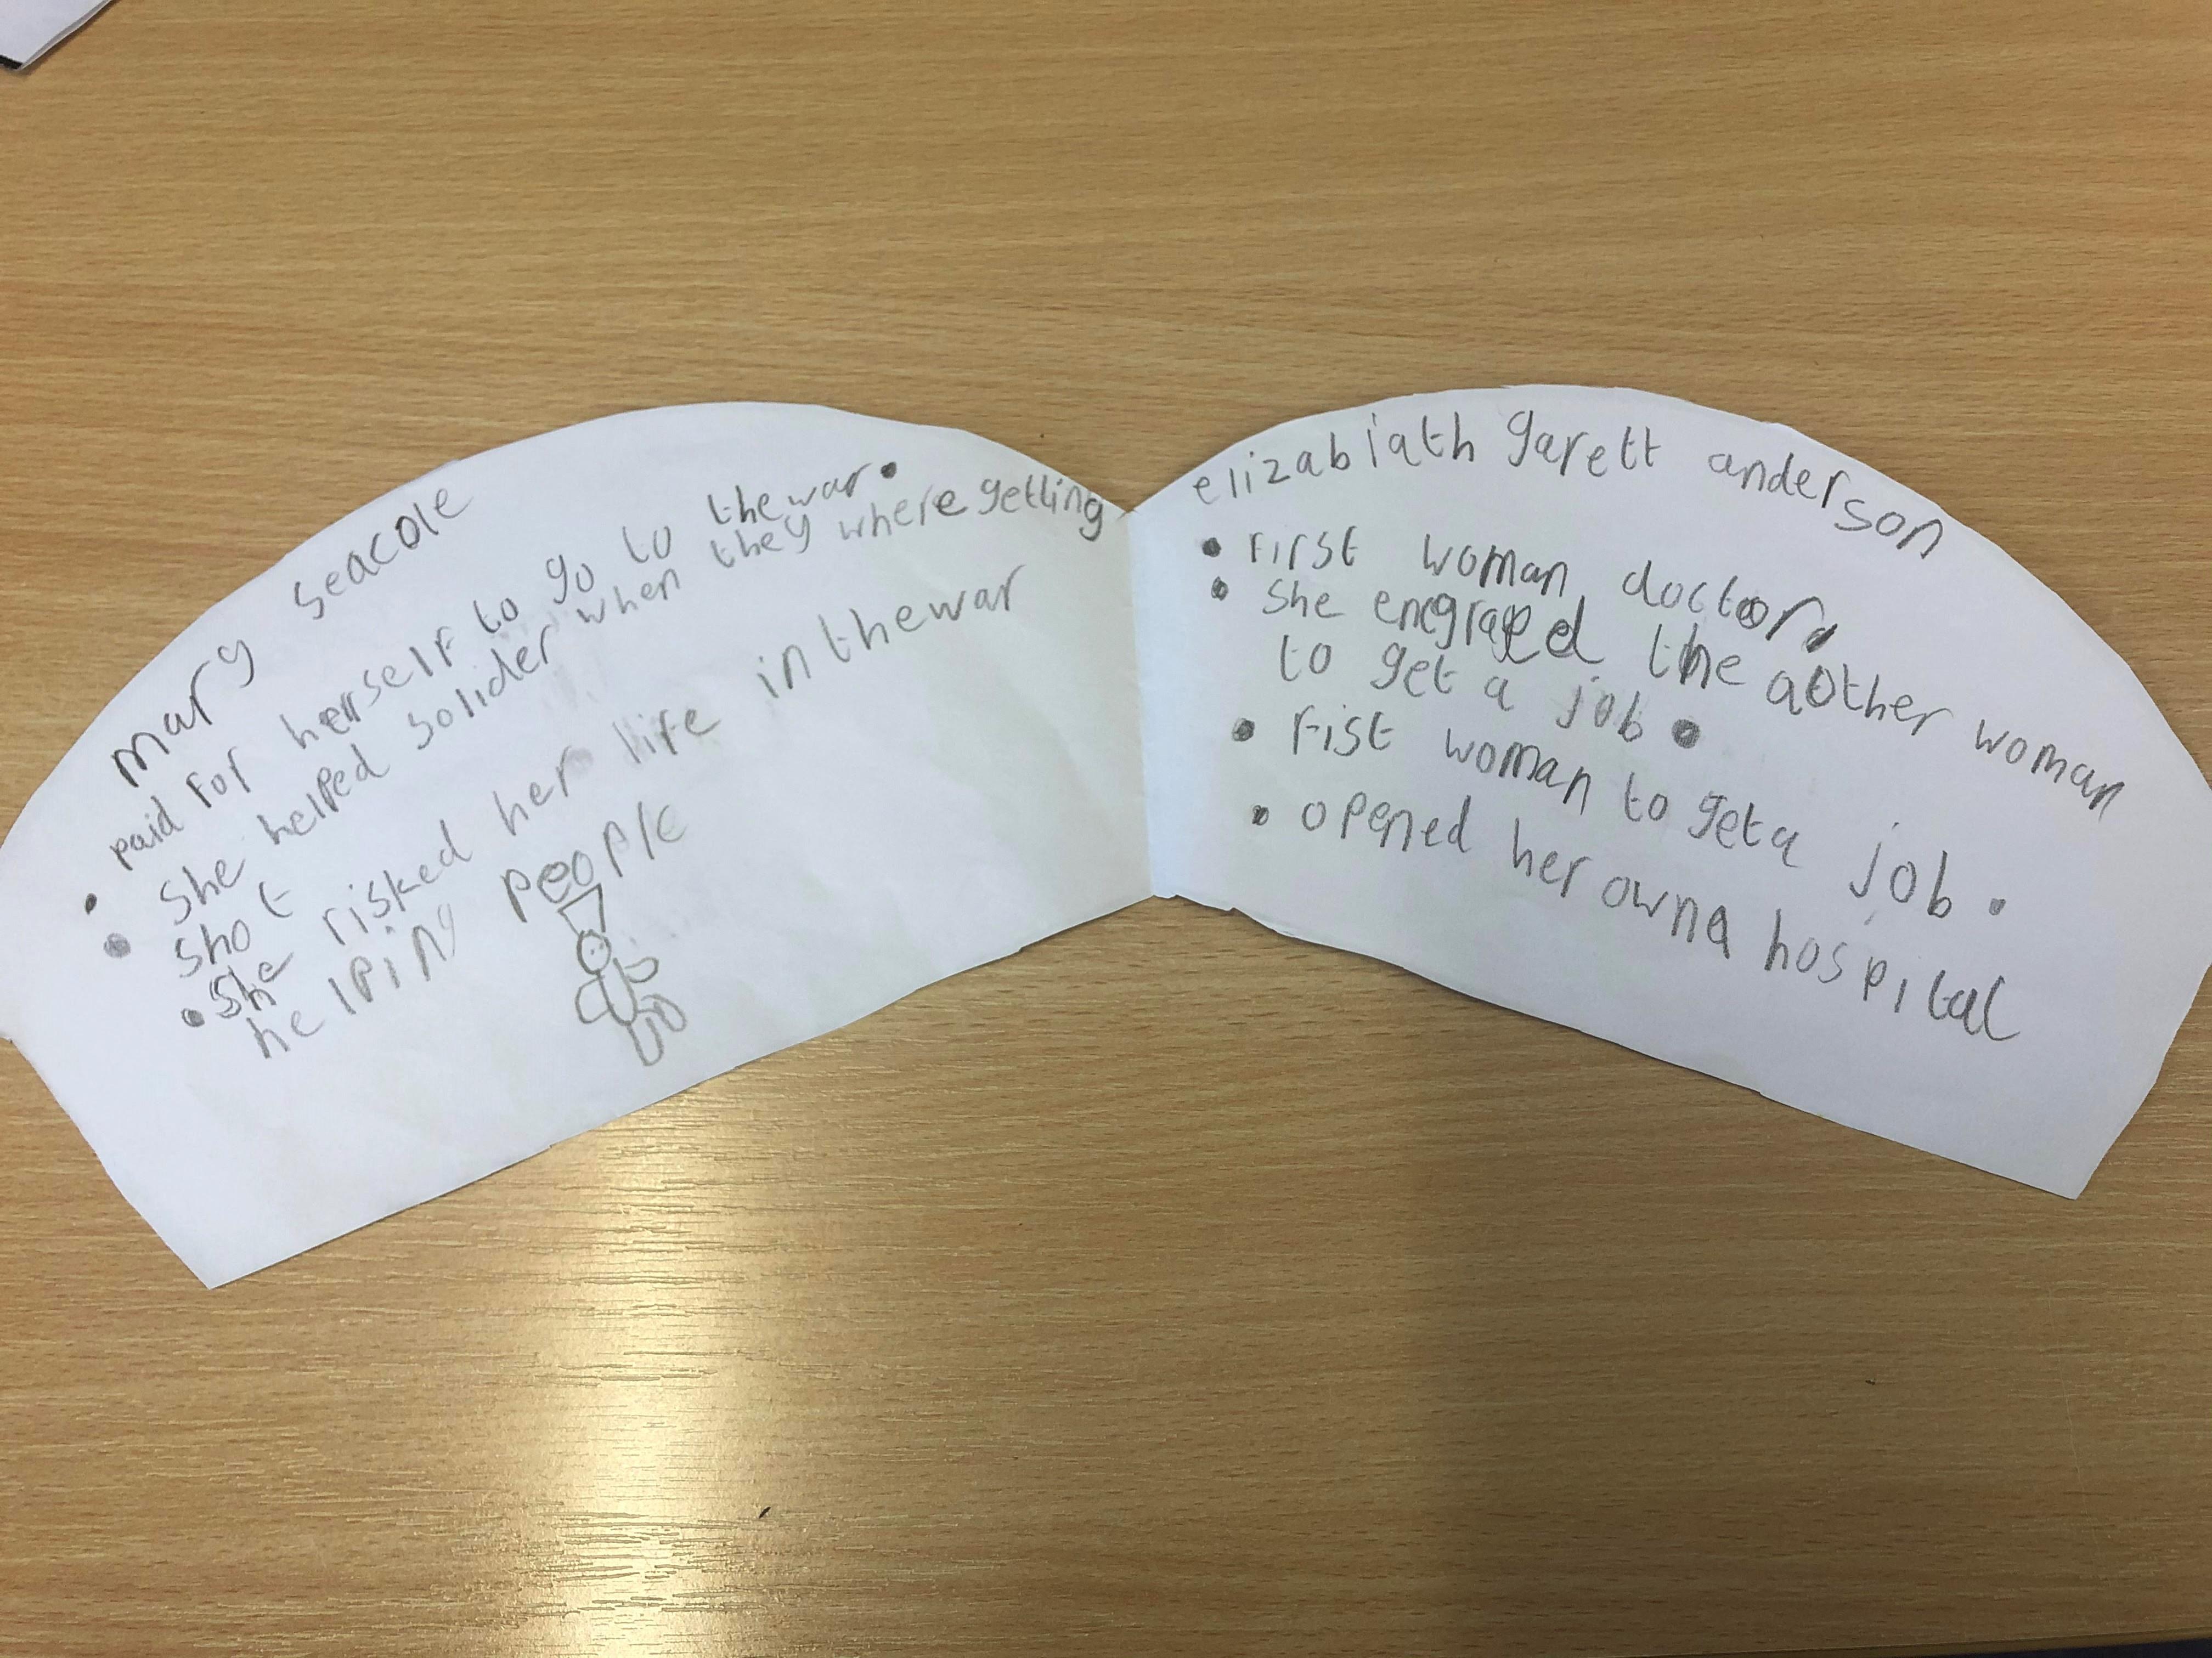 mary seacole
• paid for herself to go to the war.
• She helped solider when they where getting
shot
• She risked her life in the war
helping people
elizabiath garett anderson
• First woman doctor.
• She engraped the aother woman
to get a job.
• Fist woman to get a job.
• opened her owna hospital